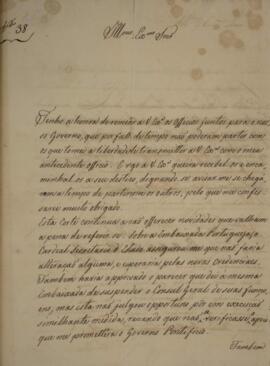 38
Illmo. Exmo. Snr.
Tenho a honra de remeter a V. Exa. os Officios juntos para o nos
so Governo, que por falta de tempo não poderam partir com
os que tomei a liberdade de transmittir a V. Exa. com o meu
antecedente officio. E rogo a V. Exa. queira recebel-os e enca
minhal-os a seu destino, dignando-se avisar-me se chega
ram a tempo de partirem os outros, pelo que me confes
sarei muito obrigado.
Esta Corte continua a não offerecer novidades que valham
a pena de referir-se. Sobre a Embaixada Portugueza, o
Cardeal Secretario d'Estado assegura-me que não faria
alteração alguma, e esperaria pelas novas credenciaes.
Tambem havia approvado o parecer que dei a mesma
Embaixada de suspender o Consul Geral de suas funç
ões, mas esta não julgou opportuno, por ora executar
semelhante medida, receando que não verificasse, o
que me promettera o Governo Pontificio.
Tambem